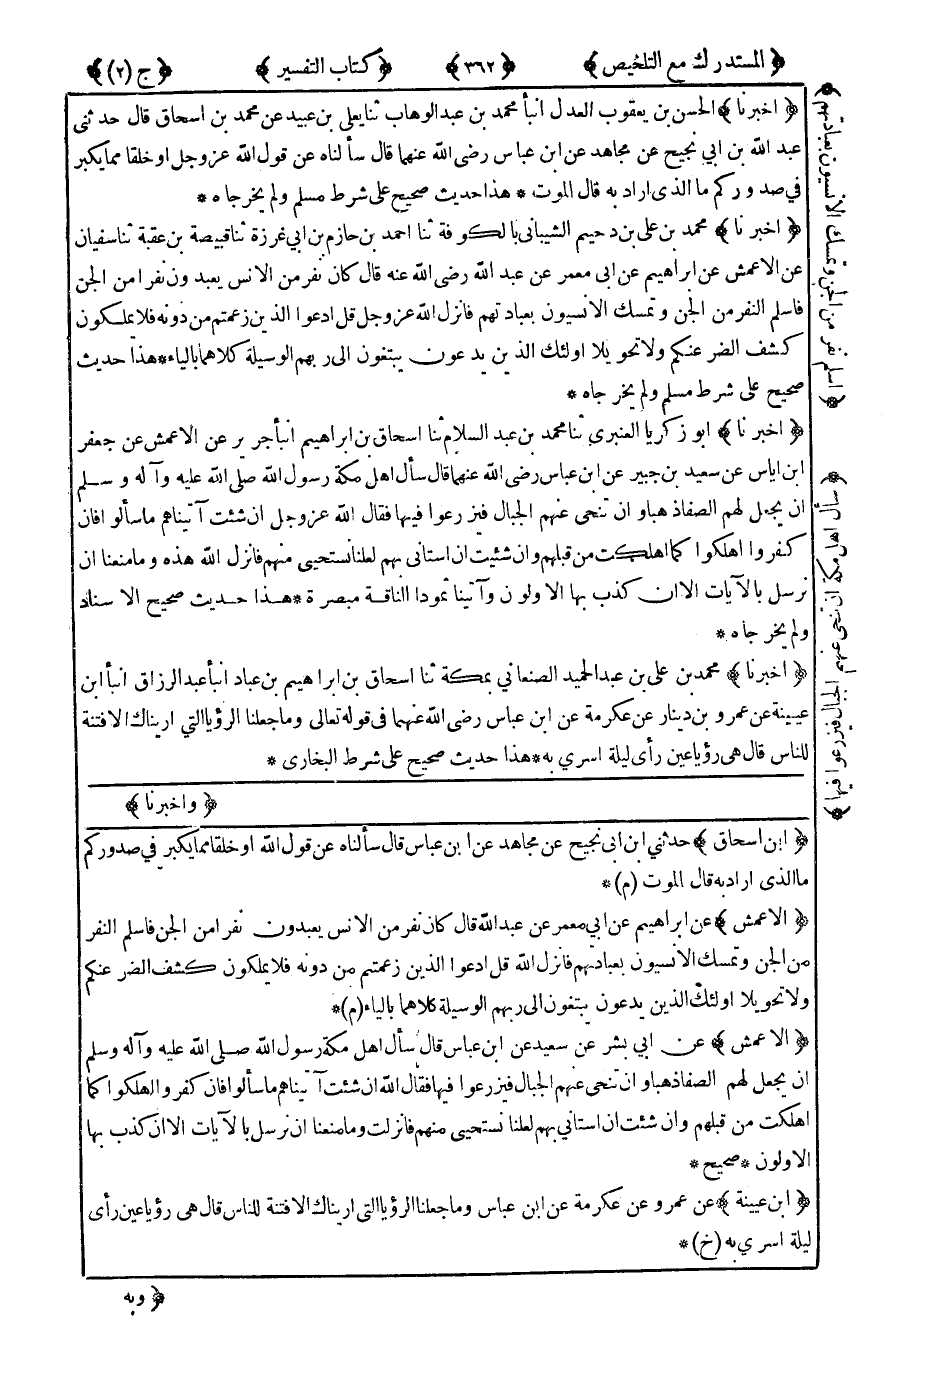 ﴿ المستدرك مع التلخيص ﴾ ﴿ ٣٦٢ ﴾ ﴿ كتاب التفسير ﴾ ﴿ ج (٢) ﴾
﴿ اخبرنا ﴾ الحسن بن يعقوب العدل انبأ محمد بن عبدالوهاب ثنا يعلى بن عبيد عن محمد بن اسحاق قال حدثنى
عبد الله بن ابي نجيح عن مجاهد عن ابن عباس رضى الله عنهما قال سألناه عن قول الله عزوجل او خلقا مما يكبر
فى صدوركم ما الذى اراد به قال الموت * هذا حديث صحيح على شرط مسلم ولم يخرجاه *
﴿ اخبرنا ﴾ محمد بن على بن دحيم الشيبانى بالكوفة ثنا احمد بن حازم بن ابي غرزة ثنا قبيصة بن عقبة ثنا سفيان
عن الاعمش عن ابراهيم عن ابى معمر عن عبد الله رضى الله عنه قال كان نفر من الانس يعبدون نفرا من الجن
فاسلم النفر من الجن وتمسك الانسيون بعبادتهم فانزل الله عزوجل قل ادعوا الذين زعمتم من دونه فلا يملكون
كشف الضر عنكم ولا تحويلا اولئك الذين يدعون يبتغون الى ربهم الوسيلة كلاهما بالياء * هذا حديث
صحيح على شرط مسلم ولم يخرجاه *
﴿ اخبرنا ﴾ ابو زكريا العنبرى ثنا محمد بن عبد السلام ثنا اسحاق بن ابراهيم انبأ جرير عن الاعمش عن جعفر
ابن اياس عن سعيد بن جبير عن ابن عباس رضى الله عنهما قال سأل اهل مكة رسول الله صلى الله عليه وآله وسلم
ان يجعل لهم الصفا ذهبا وان تنحى عنهم الجبال فيزرعوا فيها فقال الله عزوجل ان شئت آتيناهم ما سألوا فان
كفروا اهلكوا كما اهلكت من قبلهم وان شئت ان استانى بهم لعلنا نستحيى منهم فانزل الله هذه وما منعنا ان
نرسل بالآيات الا ان كذب بها الاولون وآتينا ثمودا الناقة مبصرة * هذا حديث صحيح الاسناد
ولم يخرجاه *
﴿ اخبرنا ﴾ محمد بن على بن عبدالحميد الصنعاني بمكة ثنا اسحاق بن ابراهيم بن عباد انبأ عبدالرزاق انبأ ابن
عيينة عن عمرو بن دينار عن عكرمة عن ابن عباس رضى الله عنهما فى قوله تعالى وما جعلنا الرؤيا التي اريناك الا فتنة
للناس قال هى رؤيا عين رأى ليلة اسري به * هذا حديث صحيح على شرط البخارى *
﴿ واخبرنا ﴾
﴿ اسلم نفر من الجن وتمسك الانسيون بعبادتهم ﴾
﴿ سأل اهل مكة ان تنحى عنهم الجبال فيزرعوا فيها ﴾
﴿ ابن اسحاق ﴾ حدثني ابن ابى نجيح عن مجاهد عن ابن عباس قال سألناه عن قول الله او خلقا مما يكبر في صدوركم
ما الذى اراد به قال الموت (م) *
﴿ الاعمش ﴾ عن ابراهيم عن ابي معمر عن عبدالله قال كان نفر من الانس يعبدون نفرا من الجن فاسلم النفر
من الجن وتمسك الانسيون بعبادتهم فانزل الله قل ادعوا الذين زعمتم من دونه فلا يملكون كشف الضر عنكم
ولا تحويلا اولئك الذين يدعون يبتغون الى ربهم الوسيلة كلاهما بالياء (م) *
﴿ الاعمش ﴾ عن ابي بشر عن سعيد عن ابن عباس قال سأل اهل مكة رسول الله صلى الله عليه وآله وسلم
ان يجعل لهم الصفا ذهبا وان تنحى عنهم الجبال فيزرعوا فيها فقال الله ان شئت آتيناهم ما سألوا فان كفروا اهلكوا كما
اهلكت من قبلهم وان شئت ان استاني بهم لعلنا نستحيى منهم فانزلت وما منعنا ان نرسل بالآيات الا ان كذب بها
الاولون * صحيح *
﴿ ابن عيينة ﴾ عن عمرو عن عكرمة عن ابن عباس وما جعلنا الرؤيا التى اريناك الا فتنة للناس قال هى رؤيا عين رأى
ليلة اسري به (خ) *
﴿ وبه